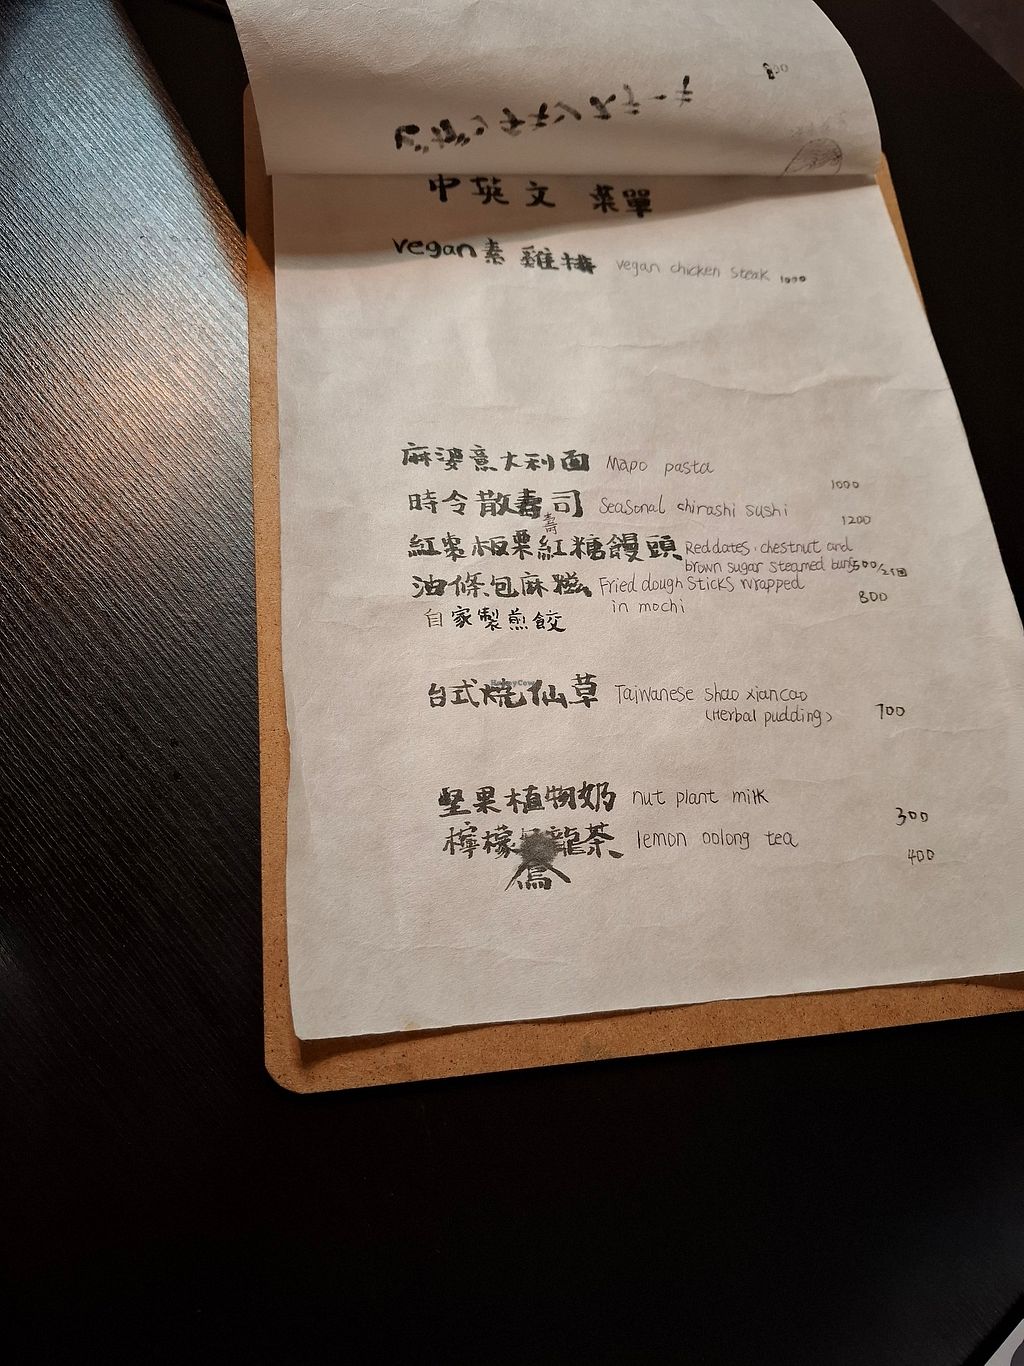 800
ビーガンチキンステーキ
中英文 菜單
vegan素雞排 vegan chicken steak 1000
麻婆意大利面 Mapo pasta 1000
時令散壽司 Seasonal chirashi sushi 1200
壽
紅棗板栗紅糖饅頭 Red dates, chestnut and
brown sugar steamed buns 500/2個
油條包麻糍 Fried dough sticks wrapped
in mochi 800
自家製煎餃
台式燒仙草 Taiwanese shao xiancao
(Herbal pudding) 700
堅果植物奶 nut plant milk 300
檸檬龍茶 lemon oolong tea 400
烏
HappyCow